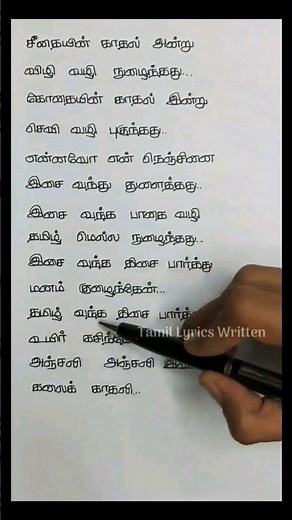 சீதையின் காதல் அன்று
விழி வழி நுழைந்தது...
கோதையின் காதல் இன்று
செவி வழி புகுந்தது..
என்னவோ என் நெஞ்சினை
இசை வந்து துளைத்தது..
இசை வந்த பாதை வழி
தமிழ் மெல்ல நுழைந்தது...
இசை வந்த திசை பார்த்து
மனம் குழைந்தேன்...
தமிழ் வந்த திசை பார்த்
Tamil Lyrics Written
உயிர்
அஞ்சலி அஞ்சலி
கலைக் காதலி...